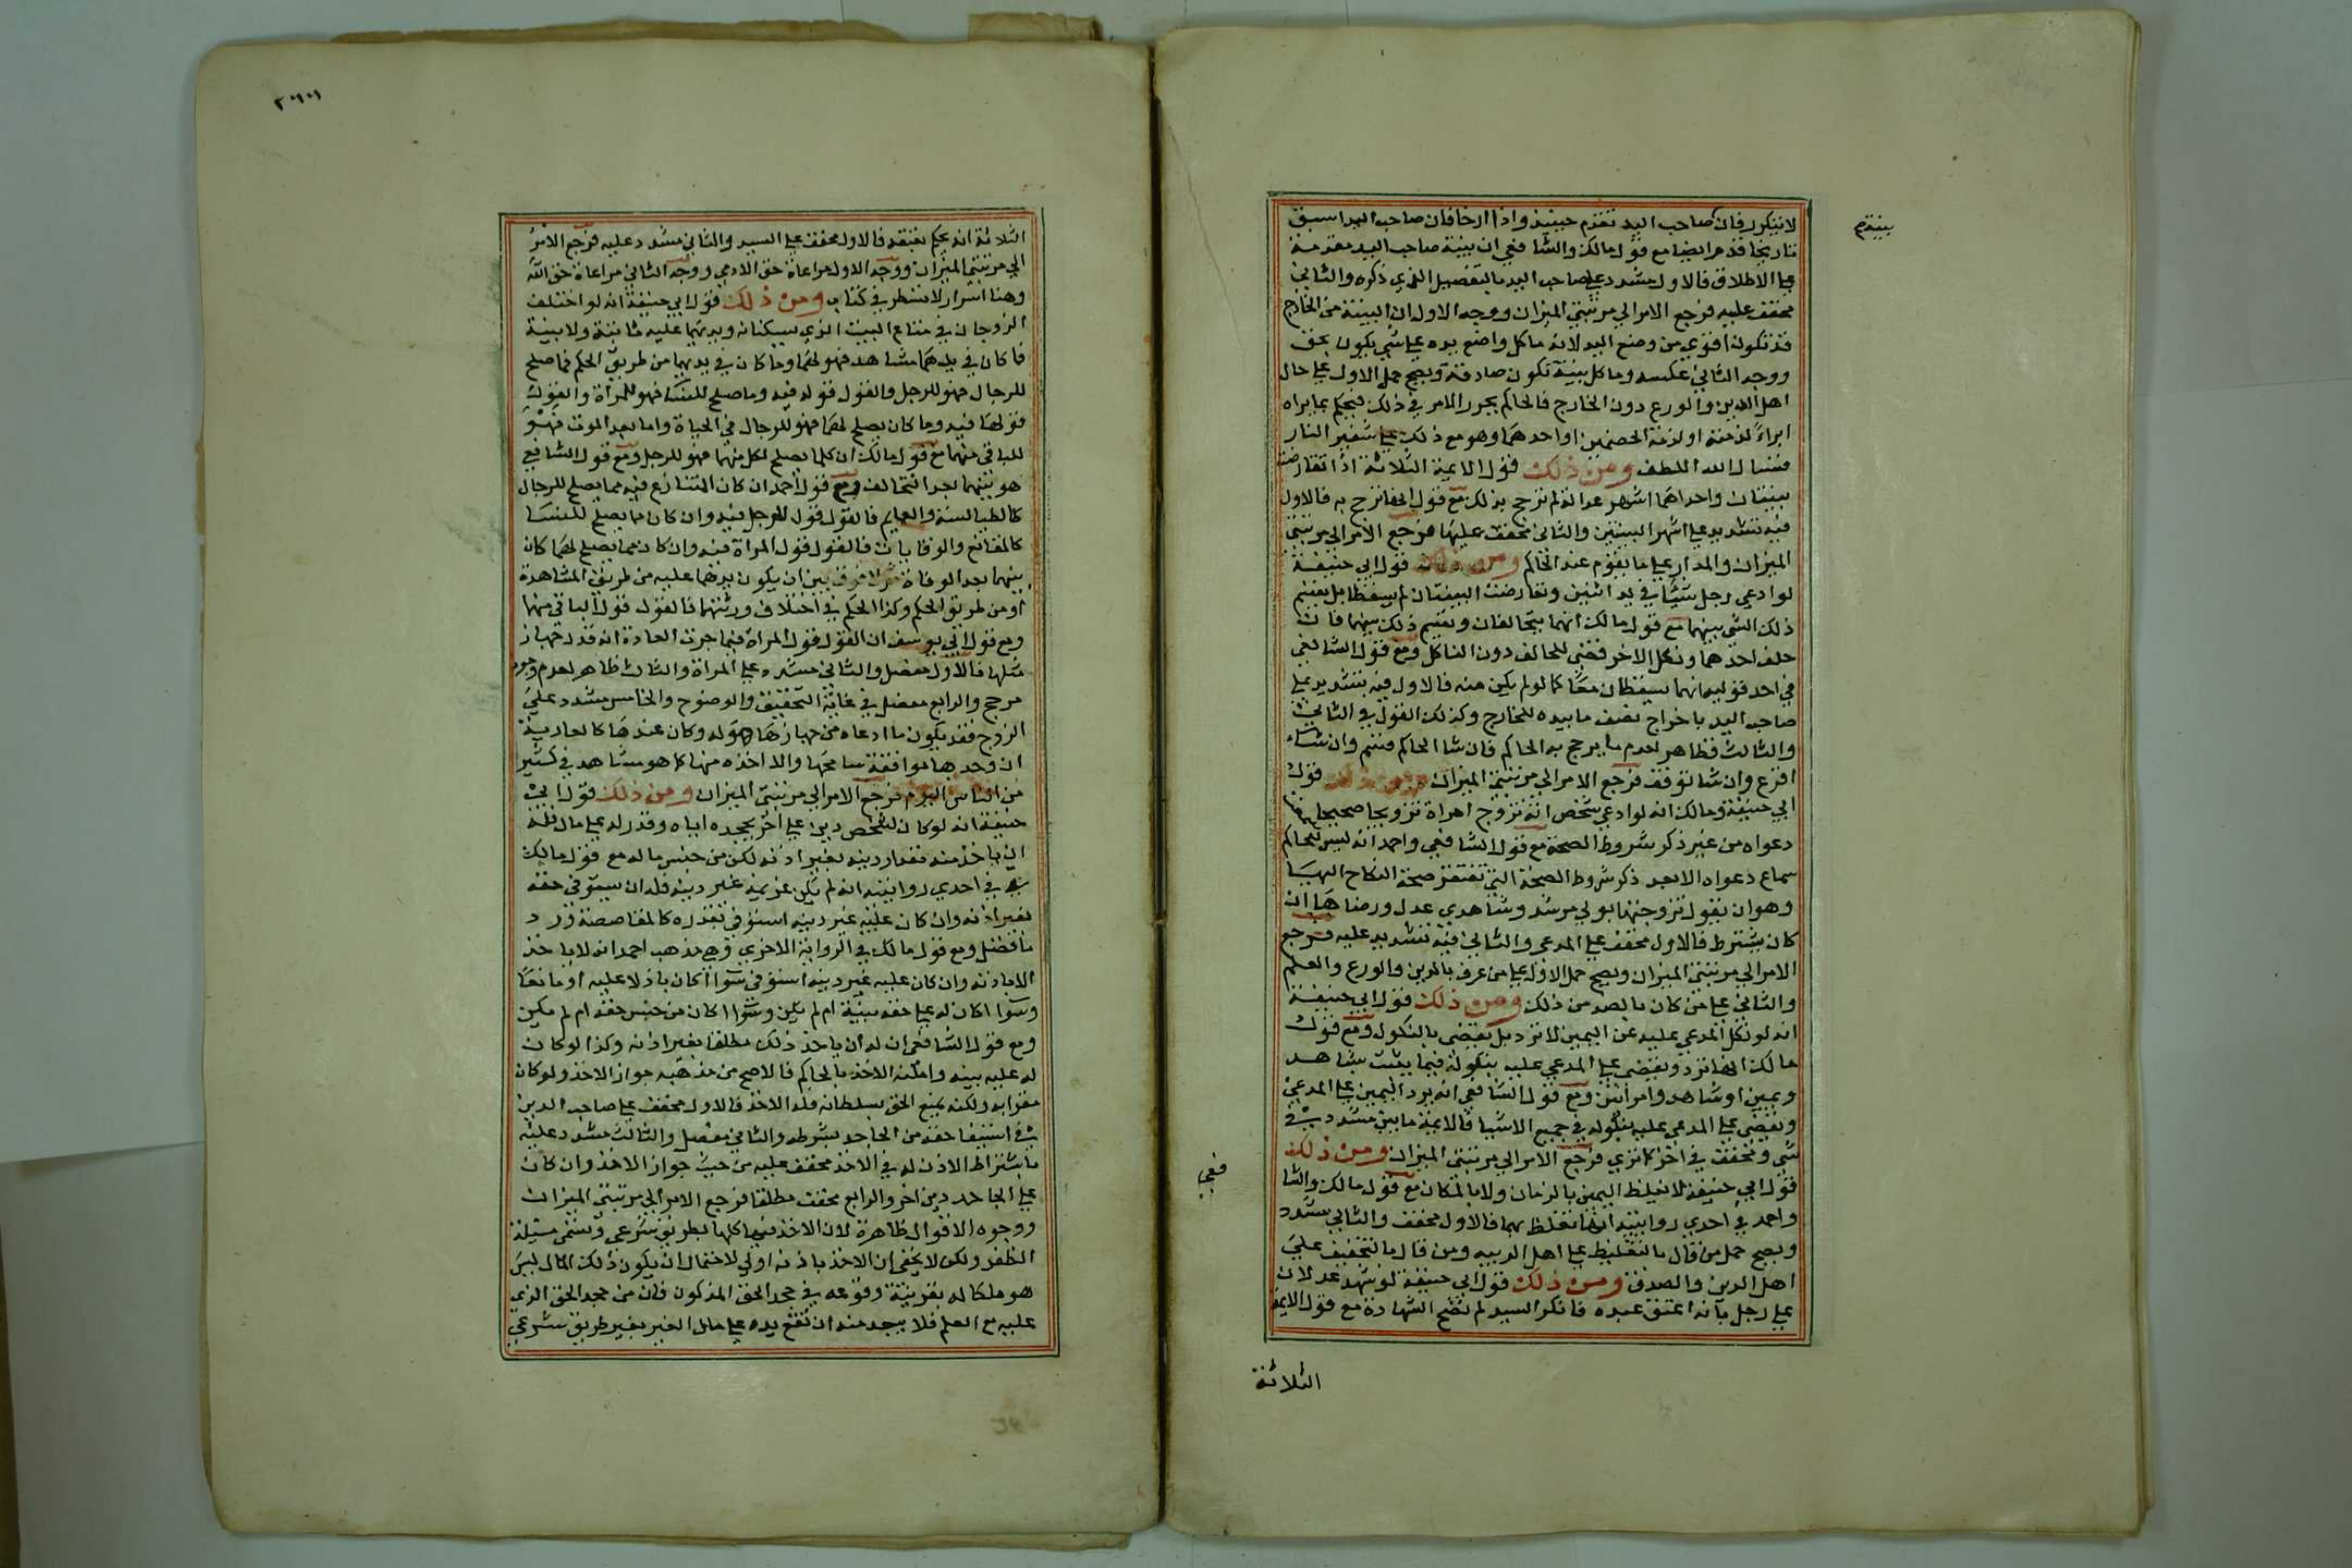 لا يتكرر فان صاحب اليد تقدم حينيذ واذا ارخا فان صاحب اليد اسبق
بينة م
تاريخا قدم ايضا مع قول مالك والشافعي ان بينة صاحب اليد مقدمة
علي الاطلاق فالاول مشدد علي صاحب اليد بالتفصيل الذي ذكره والثاني
مخفف عليه فرجع الامر الي مرتبتي الميزان ووجه الاول ان البينة من الخارج
قد تكون اقوي من وضع اليد لانه ما كل واضع يده علي شي يكون بحق
ووجه الثاني عكسه وما كل بينة تكون صادقة ويصح حمل الاول علي حال
اهل الدين والورع دون الخارج فالحاكم يحرر الامر في ذلك فيحكم بما يراه
ابراء لذمته او لذمة الخصمين او احدهما وهو مع ذلك علي شفير النار
فنسال الله اللطف ومن ذلك قول الايمة الثلاثة اذا تعارضت
بينتان واحداهما اشهر عدالة لم ترجح بذلك مع قول انها ترجح به فالاول
فيه تشديد علي اشهر البينتين والثاني مخفف عليها فرجع الامر الي مرتبتي
الميزان والمدار علي ما يقوم عند الحاكم ومن ذلك قول ابي حنيفة
لو ادعي رجل شيئا في يد اثنين وتعارضت البينتان لم يسقطا بل يقسم
ذلك الشي بينهما مع قول مالك انهما يتحالفان ويقسم ذلك بينهما فان
حلف احدهما ونكل الاخر قضي للحالف دون الناكل ومع قول الشافعي
في احد قوليه انهما يسقطان معا كما لو لم يكن منه فالاول فيه تشديد علي
صاحب اليد باخراج نصف ما بيده للخارج وكذلك القول في الثاني
والثالث فظاهر لعدم ما يرجح به الحاكم فان شا الحاكم قسم وان شاء
اقرع وان شا توقف فرجع الامر الي مرتبتي الميزان ومن ذلك قول
ابي حنيفة ومالك انه لو ادعي شخص انه تزوج امراة تزويجا صحيحا
دعواه من غير ذكر شروط الصحة مع قول الشافعي واحمد انه ليس للحاكم
سماع دعواه الا بعد ذكر شروط الصحة التي تفتقر صحة النكاح اليها
وهو ان يقول تزوجتها بولي مرشد وشاهدي عدل ورضاها ان
كان يشترط فالاول مخفف علي المدعي والثاني فيه تشديد عليه فرجع
الامر الي مرتبتي الميزان ويصح حمل الاول علي من عرف بالدين والورع والعلم
والثاني علي من كان بالضد من ذلك ومن ذلك قول ابي حنيفة
انه لو نكل المدعي عليه عن اليمين لا ترد بل يقضي بالنكول ومع قول
مالك انها ترد ويقضي علي المدعي عليه بنكوله فيما يثبت بشاهد
ويمين او شاهد وامراتين ومع قول الشافعي انه يرد اليمين علي المدعي
ويقضي علي المدعي عليه بنكوله في جميع الاشيا فالايمة ما بين مشدد في
شي ومخفف في اخر كما تري فرجع الامر الي مرتبتي الميزان ومن ذلك
قول ابي حنيفة لا تغلظ اليمين بالزمان ولا بالمكان مع قول مالك والشا
فعي
واحمد في احدي روايتيه انها تغلظ بهما فالاول مخفف والثاني مشدد
ويصح حمل من قال بالتغليظ علي اهل الريبه ومن قال بالتخفيف علي
اهل الدين والصدق ومن ذلك قول ابي حنيفة لو شهد عدلان
علي رجل بانه اعتق عبده فانكر السيد لم تصح الشهادة مع قول الايمة
الثلاثة
الثلاثة انه يحكم بعتقه فالاول مخفف علي السيد والثاني مشدد عليه فرجع الامر
الي مرتبتي الميزان ووجه الاول مراعاة حق الادمي ووجه الثاني مراعاة حق الله
وهنا اسرار لا تسطر في كتاب ومن ذلك قول ابي حنيفة انه لو اختلف
الزوجان في متاع البيت الذي يسكنانه ويديهما عليه ثابتة ولا بينة
فما كان في يديهما مشاهد فهو لهما وما كان في يديهما من طريق الحكم فما صلح
للرجال فهو للرجل والقول قوله فيه وما صلح للنسا فهو للمراة والقول
قولها فيه وما كان يصلح لهما فهو للرجال في الحياة واما بعد الموت فهو
للباقي منهما مع قول مالك ان كلما يصلح لكل منهما فهو للرجل ومع قول الشافعي
هو بينهما بعد التحالف ومع قول احمد ان كان المتنازع فيه مما يصلح للرجال
كالطيالسة والعمايم فالقول قول الرجل فيه وان كان مما يصلح للنسا
كالمقانع والوقايات فالقول قول المراة فيه وان كان مما يصلح لهما كان
بينهما بعد الوفاة ثم لا فرق بين ان يكون يدهما عليه من طريق المشاهدة
او من طريق الحكم وكذا الحكم في اختلاف ورثتهما فالقول قول الباقي منهما
ومع قول ابي يوسف ان القول قول المراة فيما جرت العادة انه قدر جهاز
مثلها فالاول مفصل والثاني مشدد علي المراة والثالث ظاهر لعدم وجود
مرجح والرابع مفصل في غاية التحقيق والوضوح والخامس مشدد علي
الزوج فقد يكون ما ادعاه من جهازها هو له وكان عندها كالعارية
ان وجدها موافقة سامحها والا اخذه منها كما هو مشاهد في كثير
من الناس اليوم فرجع الامر الي مرتبتي الميزان ومن ذلك قول ابي
حنيفة انه لو كان لشخص دين علي اخر يجحده اياه وقدر له علي مال فله
ان ياخذ منه مقدار دينه بغير اذنه لكن من جنس ماله مع قول مالك
في احدي روايتيه انه لم يكن علي غريمه غير دينه فله ان يستوفي حقه
بغير اذنه وان كان عليه غير دينه استوفي بقدره كالمقاصصة ورد
ما فضل ومع قول مالك في الرواية الاخري وهي مذهب احمد انه لا ياخذ
الا باذنه وان كان عليه غير دينه استوفي سوا اكان باذلا عليه او مانعا
وسوا اكان له علي حقه بينة ام لم يكن وسوا اكان من جنس حقه ام لم يكن
ومع قول الشافعي ان له ان ياخذ ذلك مطلقا بغير اذنه وكذا لو كان
له عليه بينه وامكنه الاخذ بالحاكم فالاصح من مذهبه جواز الاخذ ولو كان
مقرا به ولكنه يمنع الحق بسلطانه فله الاخذ فالاول مخفف علي صاحب الدين
في استيفا حقه من الجاحد بشرطه والثاني مفصل والثالث مشدد عليه
باشتراط الاذن له في الاخذ مخفف عليه من حيث جواز الاخذ وان كان
علي الجاحد دين اخر والرابع مخفف مطلقا فرجع الامر الي مرتبتي الميزان
ووجوه الاقوال ظاهرة لان الاخذ فيها كلها بطريق شرعي وتسمي مسيلة
الظفر ولكن لا يخفي ان الاخذ باذنه اولي لاحتمال ان يكون ذلك المال ليس
هو ملكا له بقرينة وقوعه في جحد الحق المذكور فان من جحد الحق الذي
عليه مع العلم فلا يبعد منه ان تقع يده علي مال الغير بغير طريق شرعي